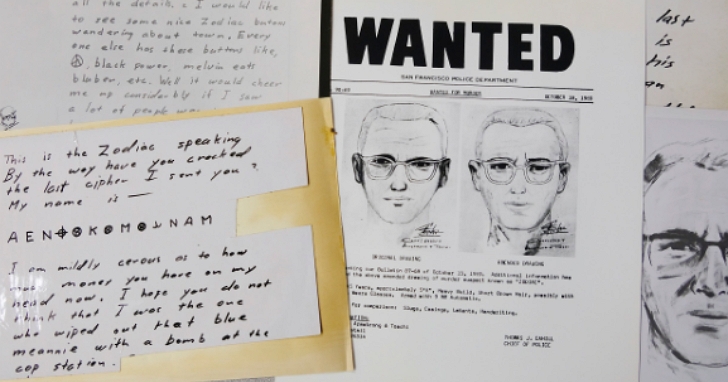 all the details. & I would like
to see some nice Zodiac butons
wandering about town. Every
one else has these buttons like,
☮, black power, melvin eats
bluber, etc. Well it would cheer
me up considerbly if I saw
a lot of people
This is the Zodiac speaking
By the way have you cracked
the last cipher I sent you?
My name is —
A E N ⌖ ⊗ K ⊗ M ⊗ ⅃ N A M
I am mildly cerous as to how
much money you have on my
head now. I hope you do not
think that I was the one
who wiped out that blue
meannie with a bomb at the
cop station.
WANTED
SAN FRANCISCO POLICE DEPARTMENT
WANTED FOR MURDER
OCTOBER 18, 1969
ORIGINAL DRAWING
AMENDED DRAWING
our Bulletin 87-69 of October 13, 1969. Additional information has
the above amended drawing of murder suspect known as "ZODIAC".
Years, approximately 5'8", Heavy Build, Short Brown Hair, possibly with
Wears Glasses. Armed with 9 MM Automatic.
for comparison: Slugs, Casings, Latents, Handwriting.
Armstrong & Toschi
THOMAS J. CAHILL
CHIEF OF POLICE
last
is
his
an